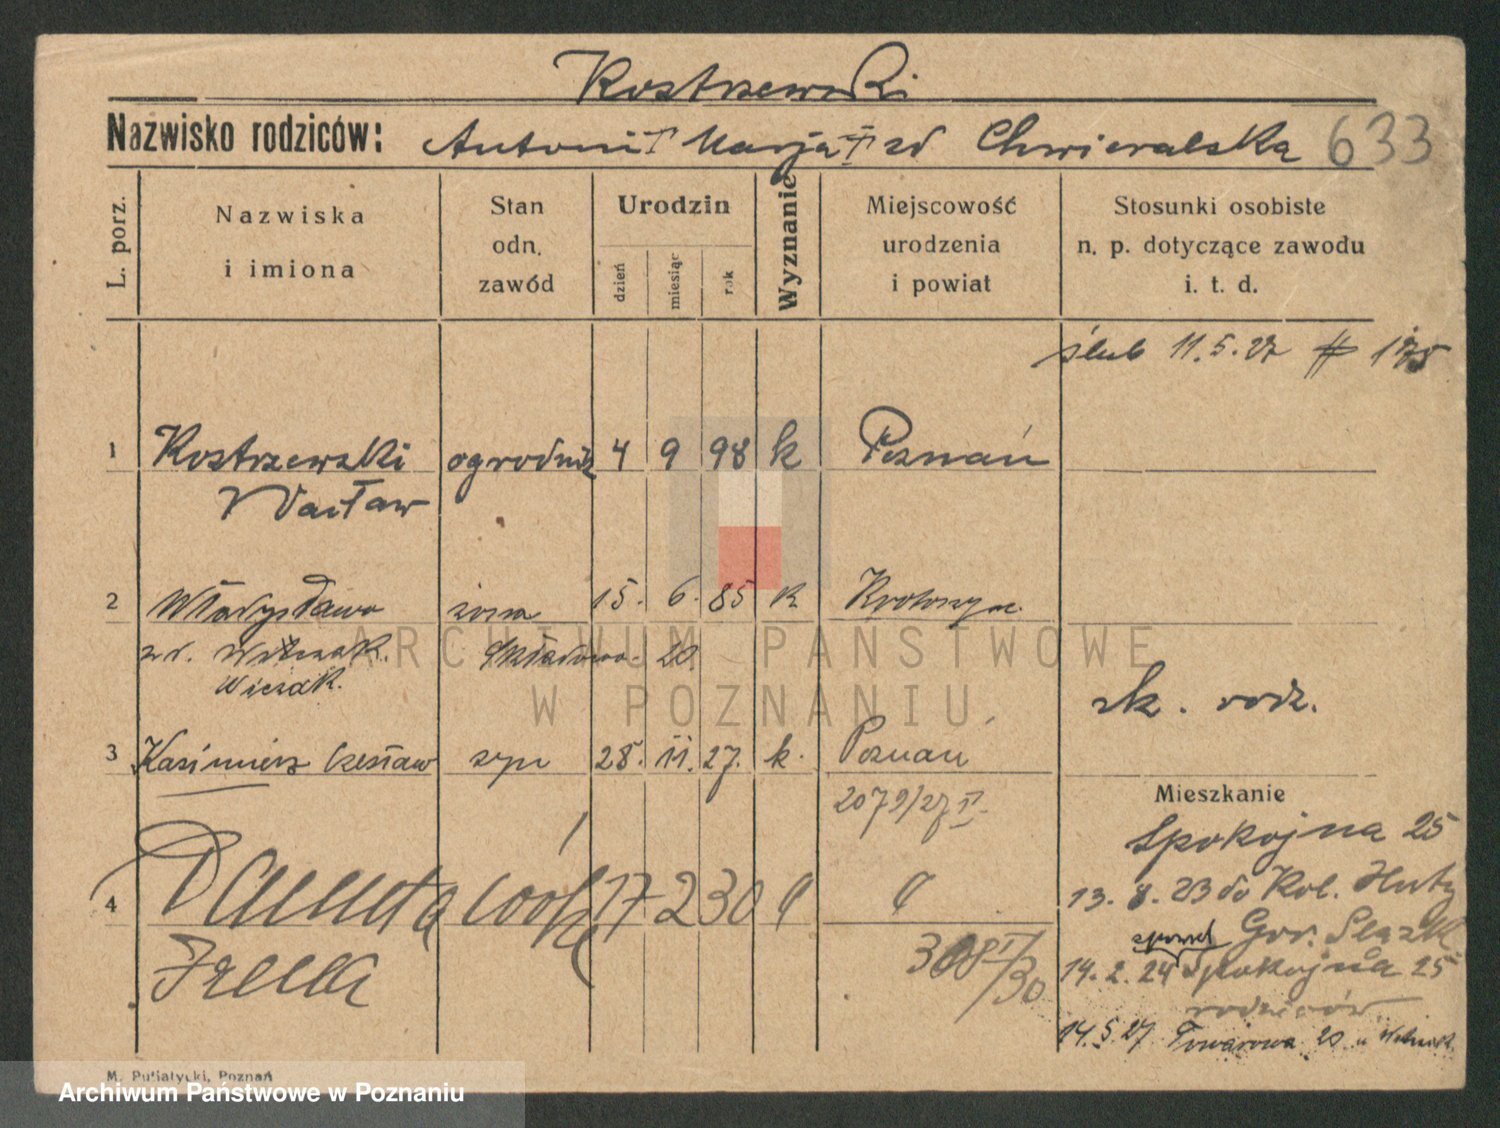 Kostrzewski
Nazwisko rodziców: Antoni † Marja † zd Chwieralska 633
L. porz.
Nazwiska i imiona
Stan odn. zawód
Urodzin
dzień miesiąc rok
Wyznanie
Miejscowość urodzenia i powiat
Stosunki osobiste n. p. dotyczące zawodu i. t. d.
ślub 11.5.27 # 175
1 Kostrzewski ogrodnik 4 9 98 k Poznań
Wacław
2 Władysława żona 15. 6. 85 k Krotoszyn
zd. Witczak. Składowa. 20.
Wiczak.
sk. rodz.
3 Kazimierz Czesław syn 28. 11. 27. k. Poznań
2079/27 V.
Mieszkanie
Spokojna 25
13. 8. 23 do Kol. Huty
Gór. Śląsk
4 Danuta córka 17 2 30
Irena
14. 2. 24 Spokojna 25
rodziców
14. 5. 27 Towarowa 20 u
M. Putiatycki, Poznań
ARCHIWUM PAŃSTWOWE
W POZNANIU
Archiwum Państwowe w Poznaniu